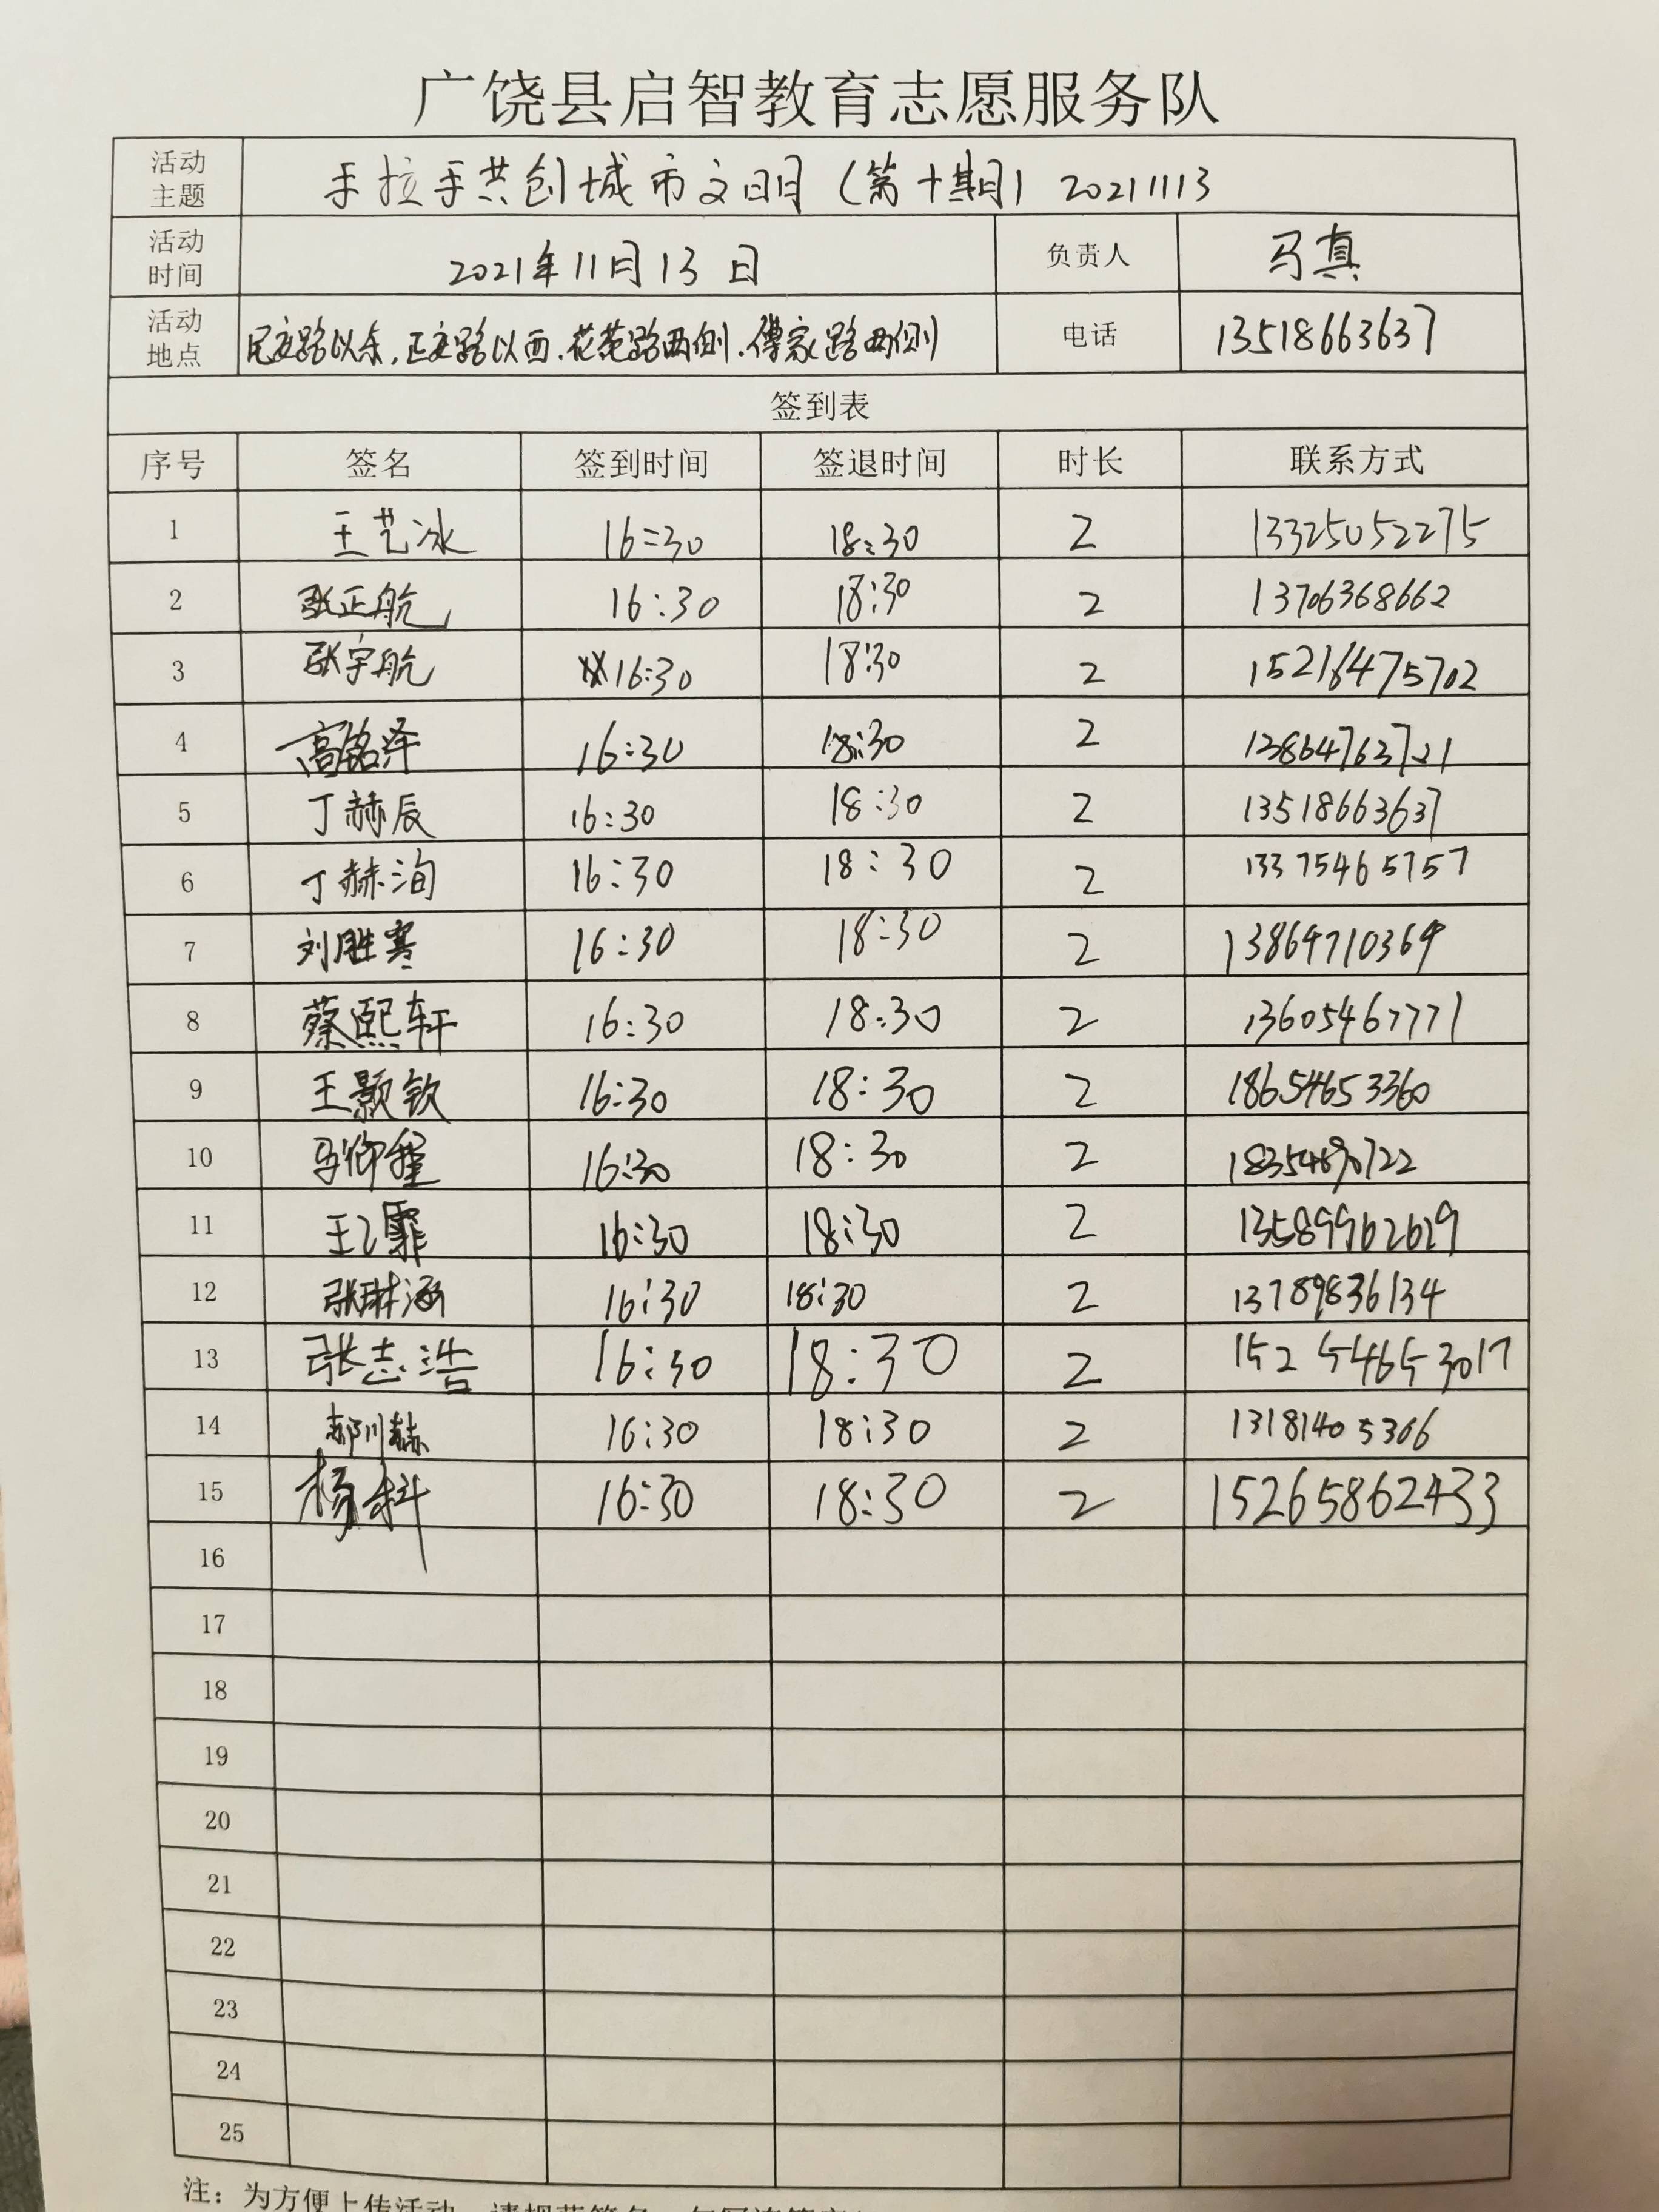 广饶县启智教育志愿服务队
活动主题 手拉手共创城市文明（第十期）20211113
活动时间 2021年11月13日 负责人 马真
活动地点 民安路以东,正安路以西.花苑路两侧.傅家路两侧 电话 13518663637
签到表
序号 签名 签到时间 签退时间 时长 联系方式
1 王艺冰 16:30 18:30 2 13325052275
2 张正航 16:30 18:30 2 13706368662
3 张宇航 16:30 18:30 2 15216475702
4 高铭泽 16:30 18:30 2 13864763721
5 丁赫辰 16:30 18:30 2 13518663637
6 丁赫洵 16:30 18:30 2 13375465757
7 刘胜寒 16:30 18:30 2 13864710369
8 蔡熙轩 16:30 18:30 2 13605467771
9 王颢钦 16:30 18:30 2 18654653360
10 马仰程 16:30 18:30 2
11 王乙霏 16:30 18:30 2 13589962629
12 张琳涵 16:30 18:30 2 13789836134
13 张志浩 16:30 18:30 2 15254653017
14 郝川赫 16:30 18:30 2 13181405366
15 杨科 16:30 18:30 2 15265862433
16
17
18
19
20
21
22
23
24
25
注：为方便上传活动